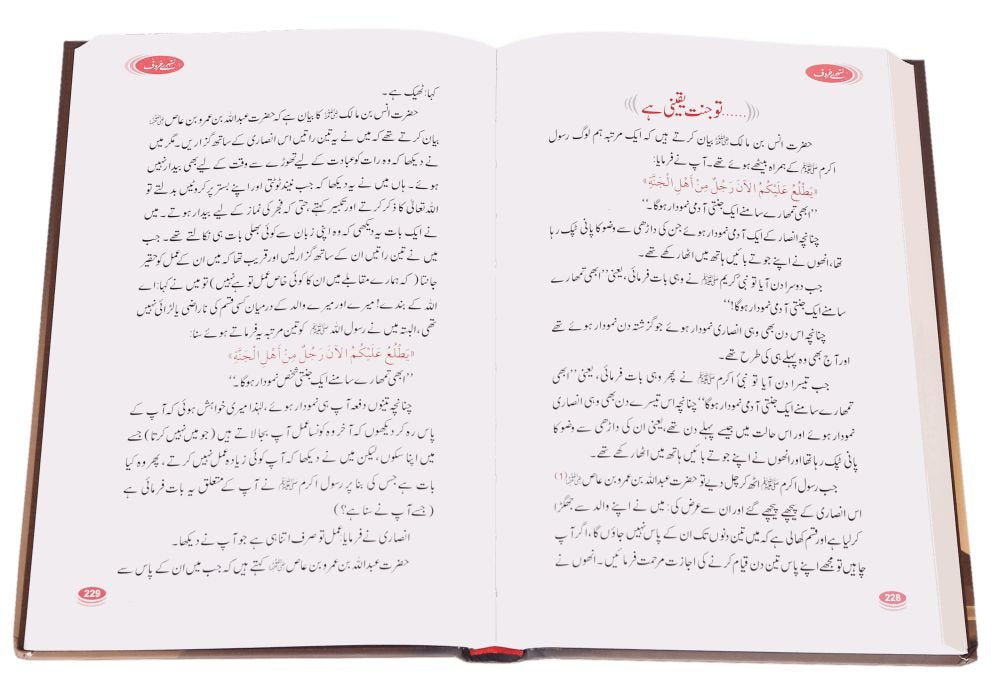 سنہرے حروف
......تو جنت یقینی ہے
حضرت انس بن مالک رضی اللہ عنہ بیان کرتے ہیں کہ ایک مرتبہ ہم لوگ رسول
اکرم ﷺ کے ہمراہ بیٹھے ہوئے تھے۔ آپ نے فرمایا:
«يَطْلُعُ عَلَيْكُمُ الآنَ رَجُلٌ مِنْ أَهْلِ الْجَنَّةِ»
’’ابھی تمھارے سامنے ایک جنتی آدمی نمودار ہوگا۔‘‘
چنانچہ انصار کے ایک آدمی نمودار ہوئے جن کی داڑھی سے وضو کا پانی ٹپک رہا
تھا، انھوں نے اپنے جوتے بائیں ہاتھ میں اٹھا رکھے تھے۔
جب دوسرا دن آیا تو نبی کریم ﷺ نے وہی بات فرمائی، یعنی ’’ابھی تمھارے
سامنے ایک جنتی آدمی نمودار ہوگا!‘‘
چنانچہ اس دن بھی وہی انصاری نمودار ہوئے جو گزشتہ دن نمودار ہوئے تھے
اور آج بھی وہ پہلے ہی کی طرح تھے۔
جب تیسرا دن آیا تو نبیٔ اکرم ﷺ نے پھر وہی بات فرمائی، یعنی ’’ابھی
تمھارے سامنے ایک جنتی آدمی نمودار ہوگا‘‘ چنانچہ اس تیسرے دن بھی وہی انصاری
نمودار ہوئے اور اس حالت میں جیسے پہلے دن تھے، یعنی ان کی داڑھی سے وضو کا
پانی ٹپک رہا تھا اور انھوں نے اپنے جوتے بائیں ہاتھ میں اٹھا رکھے تھے۔
جب رسول اکرم ﷺ اٹھ کر چل دیے تو حضرت عبداللہ بن عمرو بن عاص رضی اللہ عنہ (1)
اس انصاری کے پیچھے پیچھے گئے اور ان سے عرض کی: میں نے اپنے والد سے جھگڑا
کر لیا ہے اور قسم کھالی ہے کہ میں تین دنوں تک ان کے پاس نہیں جاؤں گا، اگر آپ
چاہیں تو مجھے اپنے پاس تین دن قیام کرنے کی اجازت مرحمت فرمائیں۔ انھوں نے
228
سنہرے حروف
کہا: ٹھیک ہے۔
حضرت انس بن مالک رضی اللہ عنہ کا بیان ہے کہ حضرت عبداللہ بن عمرو بن عاص رضی اللہ عنہ
بیان کرتے تھے کہ میں نے یہ تین راتیں اس انصاری کے ساتھ گزاریں۔ مگر میں
نے دیکھا کہ وہ رات کو عبادت کے لیے تھوڑے سے وقت کے لیے بھی بیدار نہیں
ہوئے۔ ہاں میں نے یہ دیکھا کہ جب نیند ٹوٹتی اور اپنے بستر پر کروٹیں بدلتے تو
اللہ تعالیٰ کا ذکر کرتے اور تکبیر کہتے حتی کہ فجر کی نماز کے لیے بیدار ہوتے۔ میں
نے ایک بات یہ دیکھی کہ وہ اپنی زبان سے کوئی بھلی بات ہی نکالتے تھے۔ جب
میں نے تین راتیں ان کے ساتھ گزار لیں اور قریب تھا کہ میں ان کے عمل کو حقیر
جانتا (کہ ہمارے مقابلے میں ان کا کوئی خاص عمل تو ہے نہیں) تو میں نے کہا: اے
اللہ کے بندے! میرے اور میرے والد کے درمیان کسی قسم کی ناراضی یا لڑائی نہیں
تھی، البتہ میں نے رسول اللہ ﷺ کو تین مرتبہ یہ فرماتے ہوئے سنا:
«يَطْلُعُ عَلَيْكُمُ الآنَ رَجُلٌ مِنْ أَهْلِ الْجَنَّةِ»
’’ابھی تمھارے سامنے ایک جنتی شخص نمودار ہوگا۔‘‘
چنانچہ تینوں دفعہ آپ ہی نمودار ہوئے، لہٰذا میری خواہش ہوئی کہ آپ کے
پاس رہ کر دیکھوں کہ آخر وہ کونسا عمل آپ بجا لاتے ہیں (جو میں نہیں کرتا) جسے
میں اپنا سکوں، لیکن میں نے دیکھا کہ آپ کوئی زیادہ عمل نہیں کرتے، پھر وہ کیا
بات ہے جس کی بنا پر رسول اکرم ﷺ نے آپ کے متعلق یہ بات فرمائی ہے
(جسے آپ نے سنا ہے؟)
انصاری نے فرمایا: عمل تو صرف اتنا ہی ہے جو آپ نے دیکھا۔
حضرت عبداللہ بن عمرو بن عاص رضی اللہ عنہ کہتے ہیں کہ جب میں ان کے پاس سے
229